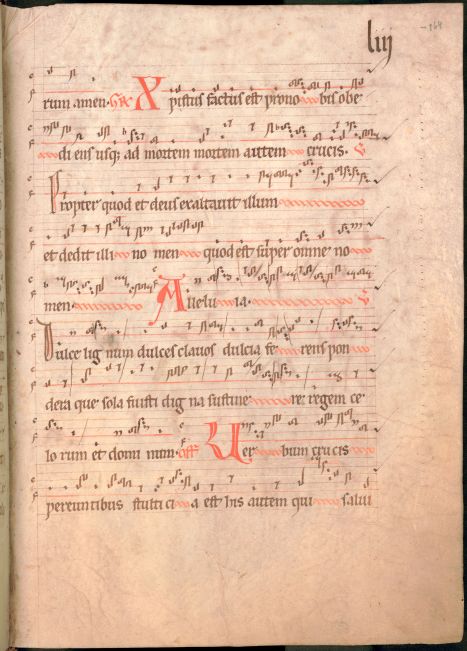 liij
164
rum amen. Gr̃. Xpistus factus est pro no bis obe
di ens usq; ad mortem mortem autem crucis. V
Propter quod et deus exaltauit illum
et dedit illi no men quod est super omne no
men. Alle lu ia. V
Dulce lig num dulces clauos dulcia fe rens pon
dera que sola fuisti dig na sustine re regem ce
lo rum et domi num. off. Uer bum crucis
pereuntibus stulti ci a est his autem qui salui